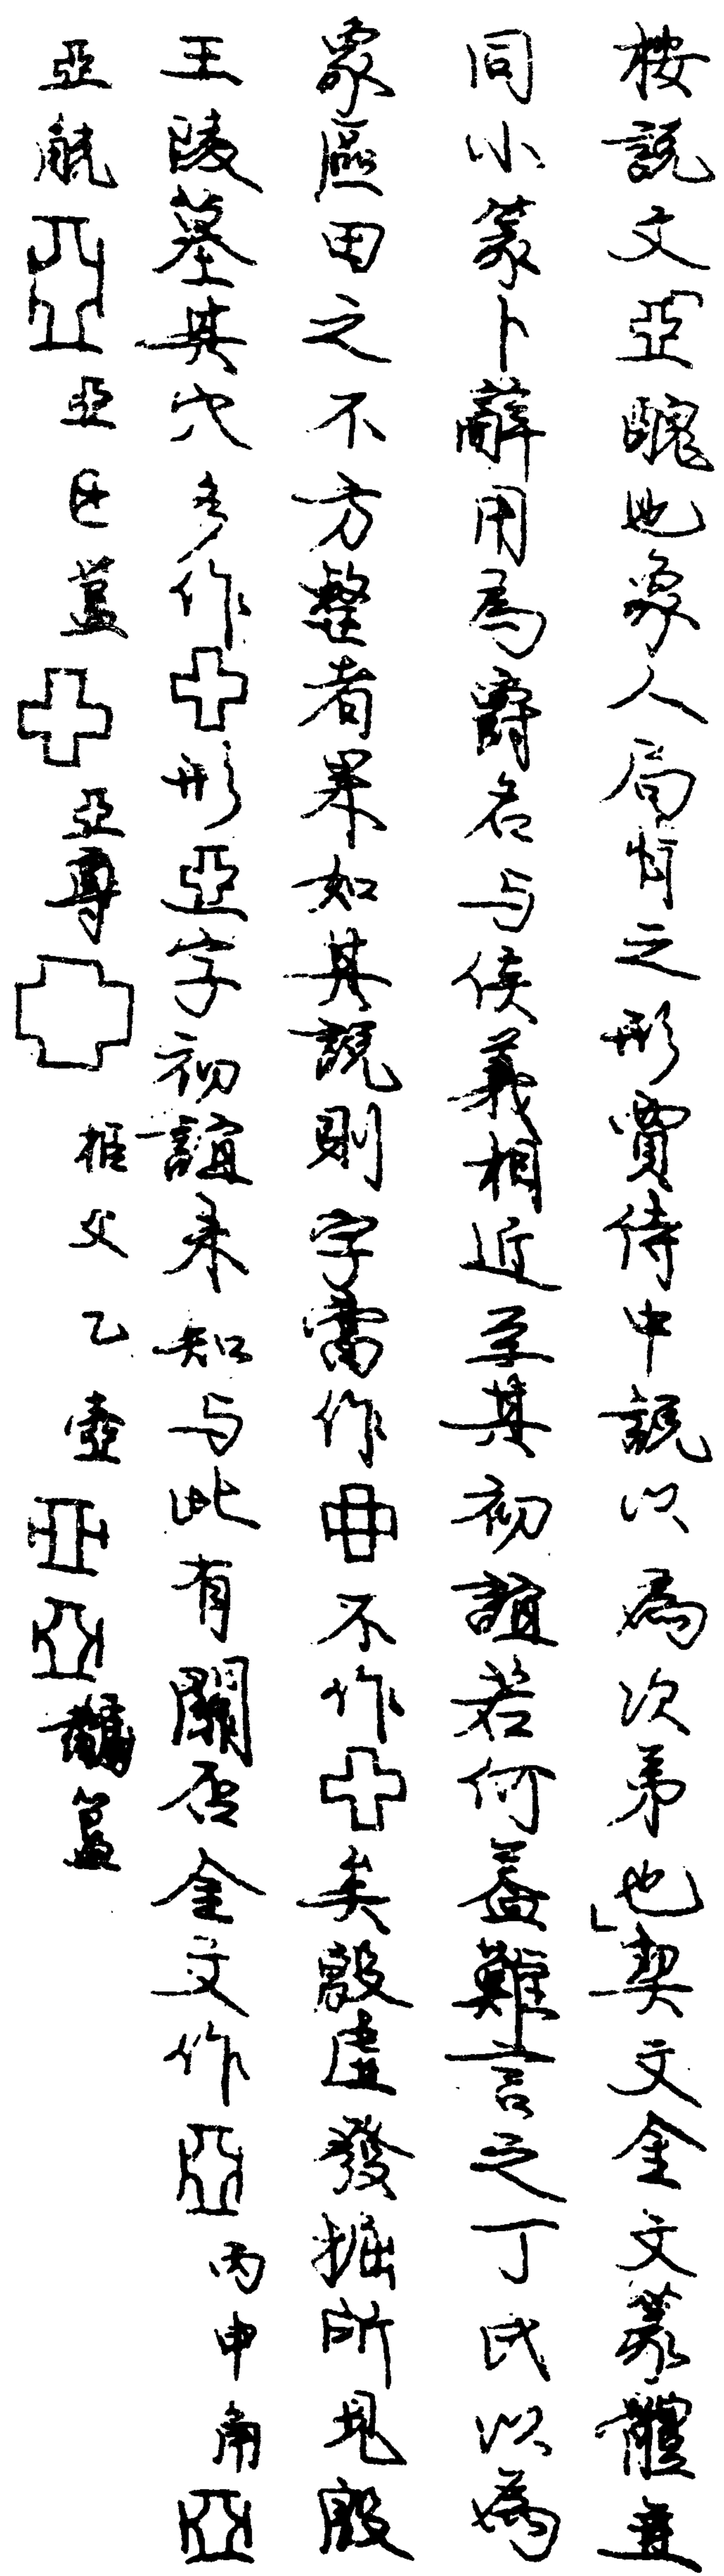 按說文「亞醜也象人局背之形賈侍中說以為次弟也」契文金文篆體並
同小篆卜辭用為爵名与侯義相近至其初誼若何蓋難言之丁氏以為
象區田之不方整者果如其說則字當作不作矣殷虛發掘所見殷
王陵墓其穴多作形亞字初誼未知与此有關否金文作丙申角
亞觥亞簋亞尊父乙壺簋